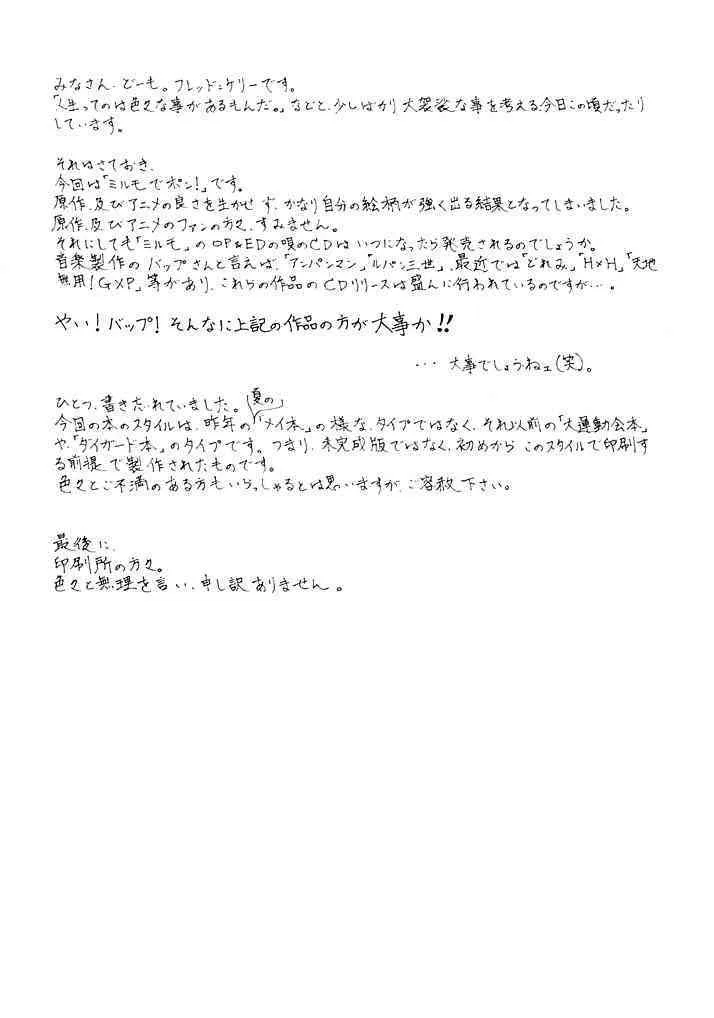 みなさん、どーも。フレッド=ケリーです。
「人生ってのは色々な事があるもんだ。」などと、少しばかり大袈裟な事を考える今日この頃だったり
しています。
それはさておき、
今回は「ミルモでポン!」です。
原作、及びアニメの良さを生かせず、かなり自分の絵柄が強く出る結果となってしまいました。
原作、及びアニメのファンの方々、すみません。
それにしても「ミルモ」のOP&EDの唄のCDはいつになったら発売されるのでしょうか。
音楽製作のバップさんと言えば、「アンパンマン」「ルパン三世」、最近では「どれみ」「H×H」「天地
無用!GXP」等があり、これらの作品のCDリリースは盛んに行われているのですが…。
やい!バップ!そんなに上記の作品の方が大事か!!
… 大事でしょうねェ(笑)。
ひとつ、書き忘れていました。
今回の本のスタイルは、昨年の(夏の)「メイ本」の様な、タイプではなく、それ以前の「大運動会本」
や、「ダイガード本」のタイプです。つまり、未完成版ではなく、初めからこのスタイルで印刷す
る前提で製作されたものです。
色々とご不満のある方もいらっしゃるとは思いますが、ご容赦下さい。
最後に、
印刷所の方々。
色々と無理を言い、申し訳ありません。